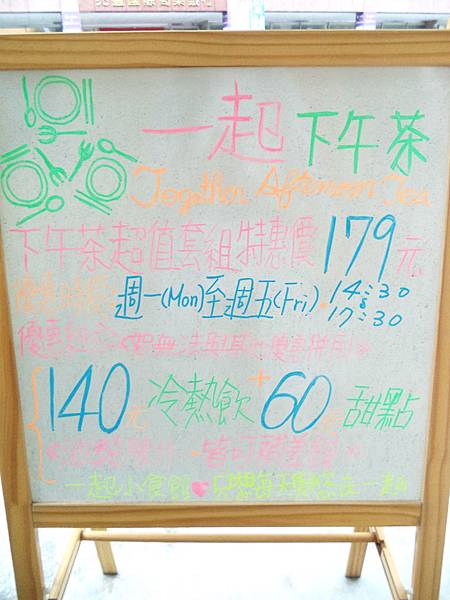 一起下午茶
Together Afternoon Tea
下午茶超值套組特惠價179元
優惠時間 週一(Mon)至週五(Fri) 14:30
17:30
優惠組合 無法與其他優惠併用
140元冷熱飲+60元甜點
一起小食館♥只想每天 在一起